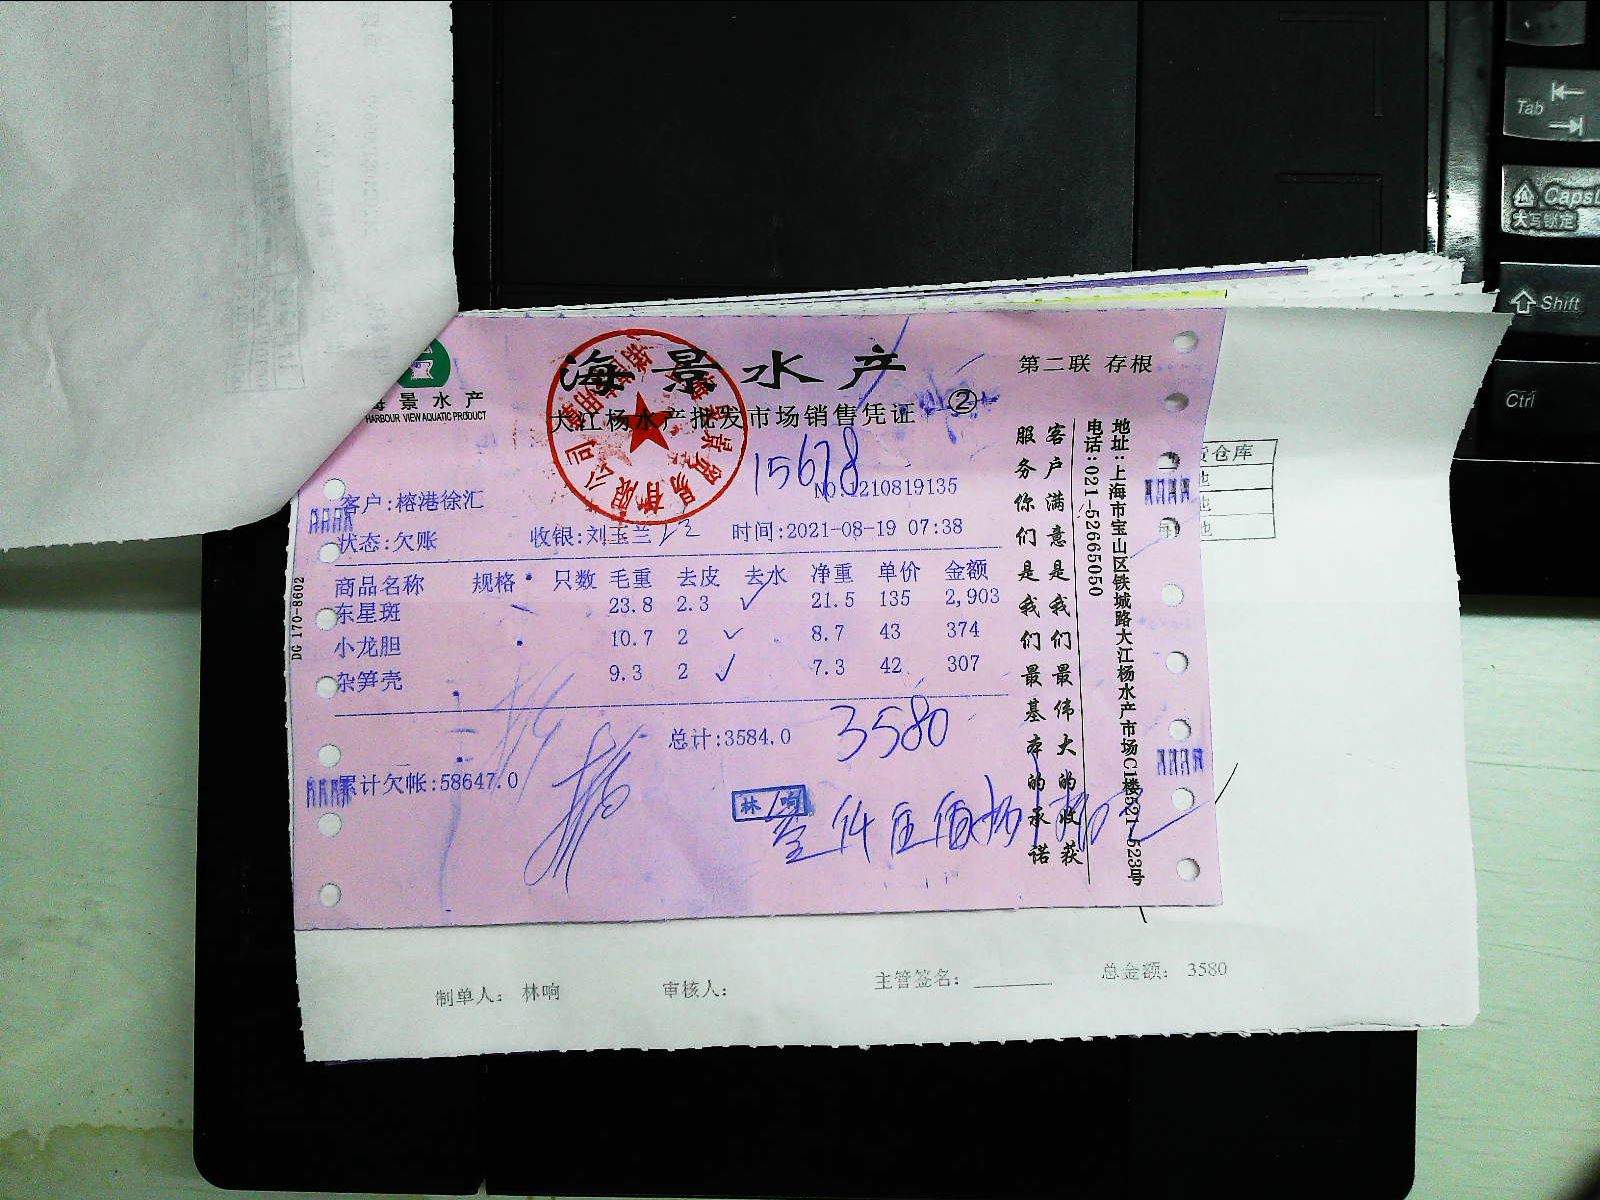 海景水产
第二联 存根
景水产
HARBOUR VIEW AQUATIC PRODUCT
大江杨水产批发市场销售凭证 ②
15678
NO:1210819135
客户:榕港徐汇
状态:欠账 收银:刘玉兰 时间:2021-08-19 07:38
商品名称 规格 只数 毛重 去皮 去水 净重 单价 金额
东星斑 23.8 2.3 ✓ 21.5 135 2,903
小龙胆 10.7 2 ✓ 8.7 43 374
杂笋壳 9.3 2 ✓ 7.3 42 307
总计:3584.0 3580
累计欠帐:58647.0
林响
客户满意是我们最伟大的收获
服务你们是我们最基本的承诺
地址:上海市宝山区铁城路大江杨水产市场C1楼521-523号
电话:021-52665050
DG 170-8602
仓库
制单人: 林响 审核人: 主管签名: 总金额: 3580
Tab
CapsL
大写锁定
Shift
Ctrl